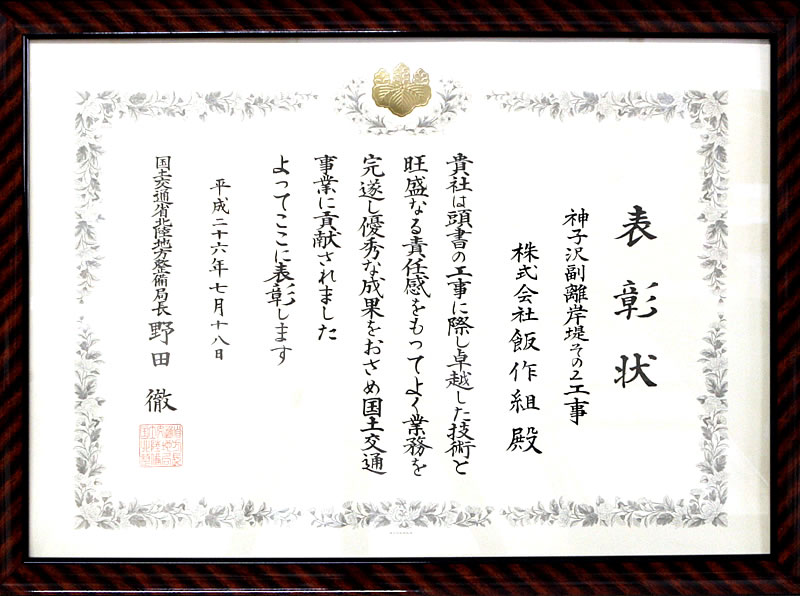 表彰状
神子沢副離岸堤その2工事
株式会社飯作組 殿
貴社は頭書の工事に際し卓越した技術と
旺盛なる責任感をもってよく業務を
完遂し優秀な成果をおさめ国土交通
事業に貢献されました
よってここに表彰します
平成二十六年七月十八日
国土交通省北陸地方整備局長 野田 徹